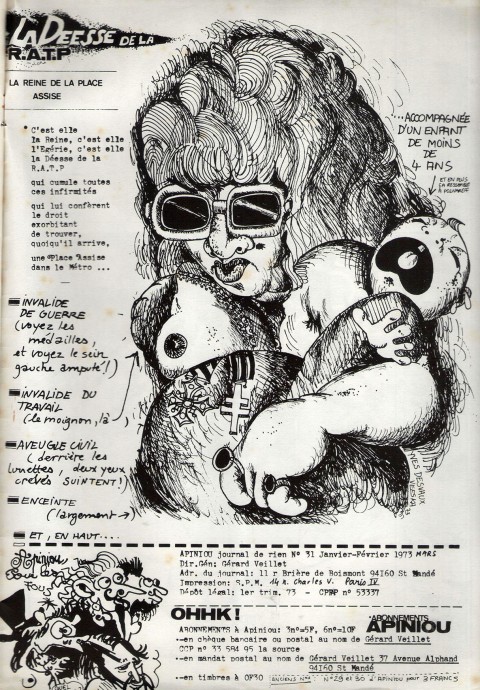 LA DEESSE DE LA
R.A.T.P
LA REINE DE LA PLACE
ASSISE
C'est elle
la Reine, c'est elle
l'Egérie, c'est elle
la Déesse de la
R.A.T.P
qui cumule toutes
ces infirmités
qui lui confèrent
le droit
exorbitant
de trouver,
quoiqu'il arrive,
une Place Assise
dans le Métro ...
INVALIDE
DE GUERRE
(voyez les
médailles,
et voyez le sein
gauche amputé!)
INVALIDE DU
TRAVAIL
(le moignon, là
AVEUGLE CIVIL
(derrière les
lunettes, deux yeux
crevés SUINTENT!)
ENCEINTE
(largement →)
ET, EN HAUT....
...ACCOMPAGNÉE
D'UN ENFANT
DE MOINS
DE
4 ANS
ET EN PLUS
YVES DESVAUX
Apiniou
APINIOU journal de rien N° 31 Janvier-Février 1973 MARS
Dir.Gén: Gérard Veillet
Adr. du journal: 11 r Brière de Boismont 94160 St Mandé
Impression: S.P.M. 14 r. Charles V. Paris IV
Dépôt légal: 1er trim. 73 - CPPP n° 53337
OHHK!
ABONNEMENTS
APINIOU
ABONNEMENTS à Apiniou: 3n°=5F, 6n°=10F
--en chèque bancaire ou postal au nom de Gérard Veillet
CCP n° 33 584 95 la source
--en mandat postal au nom de Gérard Veillet 37 Avenue Alphand
94160 St Mandé
--en timbres à 0F30
ANCIENS Nos N° 29 et 30 d'APINIOU pour 3 FRANCS